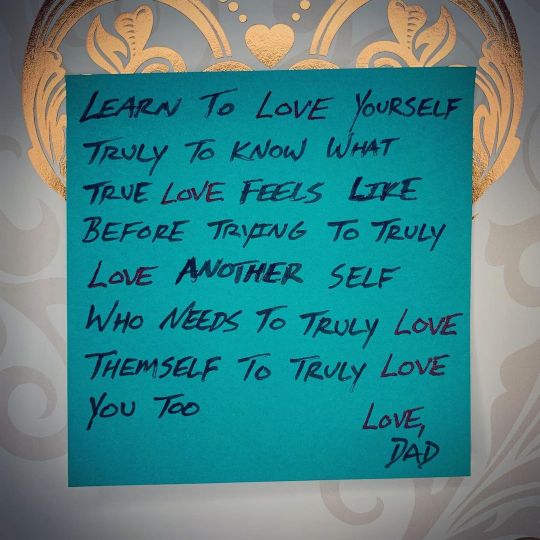 LEARN TO LOVE YOURSELF
TRULY TO KNOW WHAT
TRUE LOVE FEELS LIKE
BEFORE TRYING TO TRULY
LOVE ANOTHER SELF
WHO NEEDS TO TRULY LOVE
THEMSELF TO TRULY LOVE
YOU TOO
LOVE,
DAD